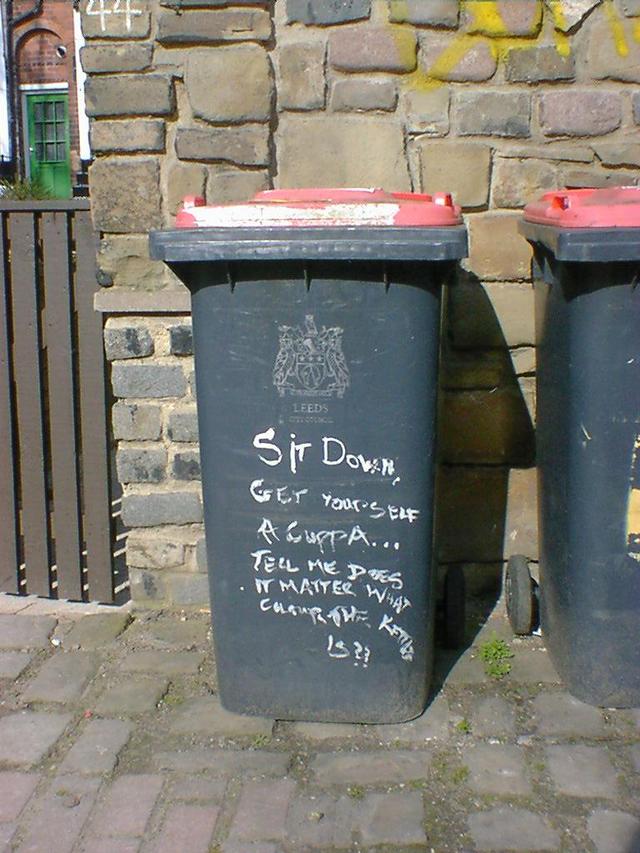 44
LEEDS
CITY COUNCIL
SIT DOWN,
GET YOURSELF
A CUPPA...
TELL ME DOES
IT MATTER WHAT
COLOUR THE KETTLE
IS??